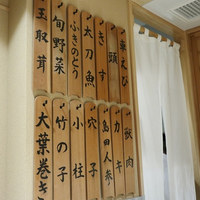 車えび
頭
きす
太刀魚
ふきのとう
旬野菜
玉取茸
カキ
島田人参
穴子
小柱
竹の子
大葉巻き